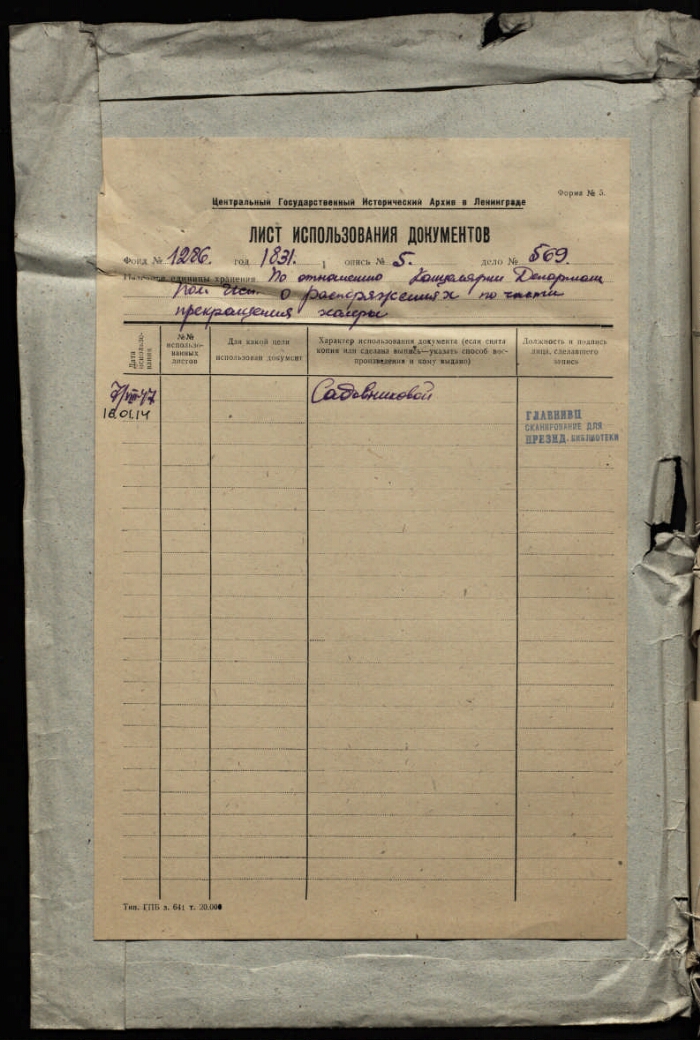 Форма № 5.
Центральный Государственный Исторический Архив в Ленинграде
ЛИСТ ИСПОЛЬЗОВАНИЯ ДОКУМЕНТОВ
Фонд № 1286. год 1831. опись № 5. дело № 569.
единицы хранения По отношению Канцелярии Департам
Пол Исп. о распоряжениях по части
прекращения холеры
Дата использования
№№ использованных листов
Для какой цели использован документ
Характер использования документа (если снята копия или сделана выпись—указать способ воспроизведения и кому выдано)
Должность и подпись лица, сделавшего запись
7/VIII-47 Садовниковой
16.01.14
ГЛАВНИВЦ
СКАНИРОВАНИЕ ДЛЯ
ПРЕЗИД. БИБЛИОТЕКИ
Тип. ГПБ з. 641 т. 20.000